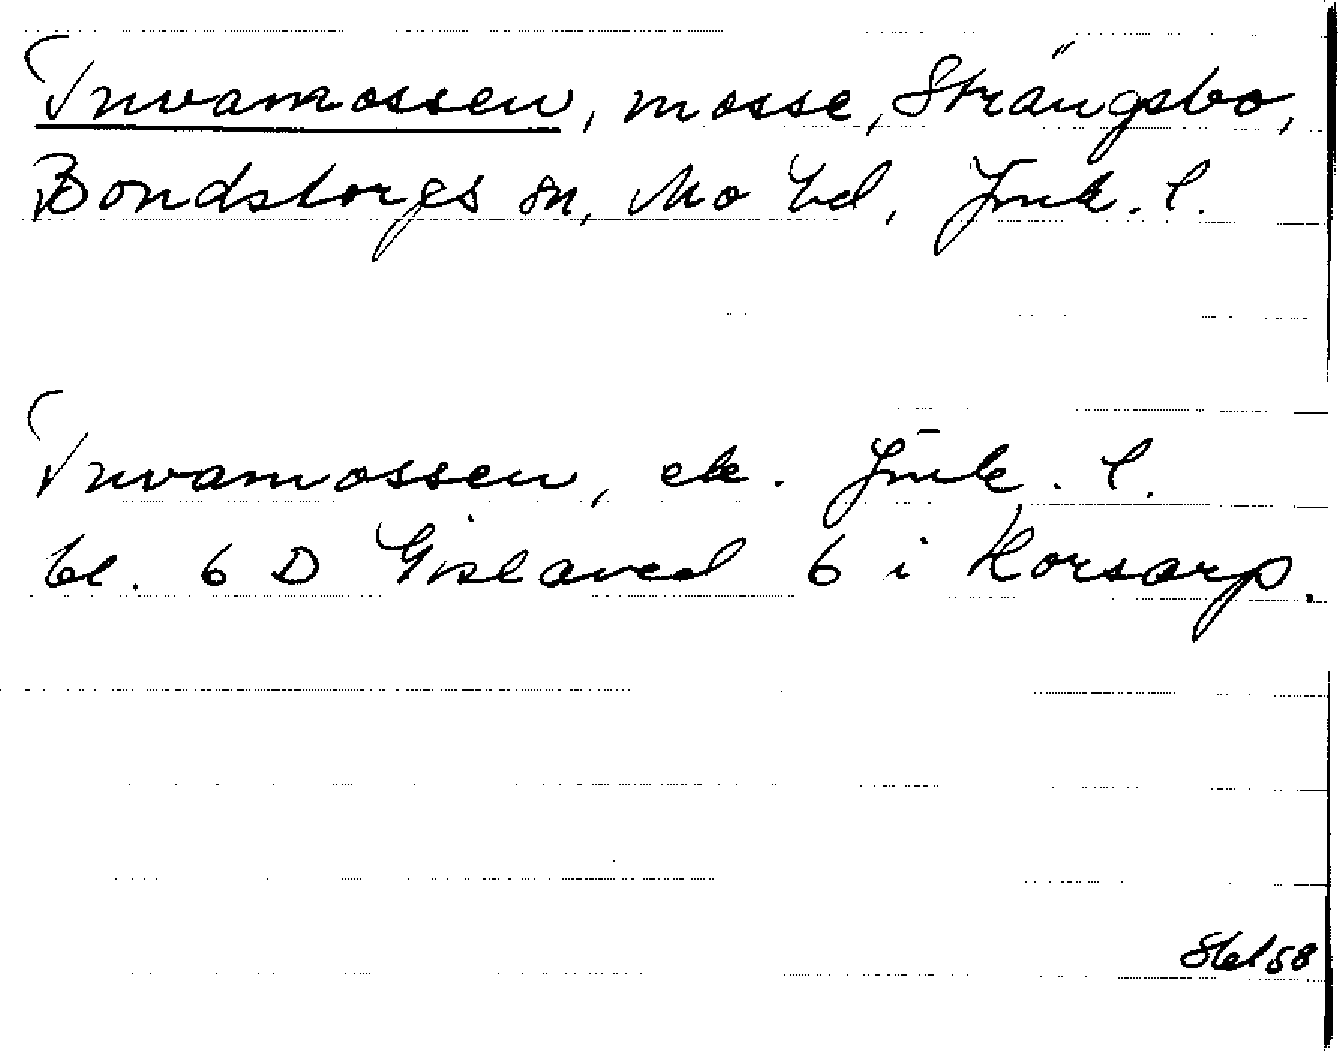 Truvamossen, mosse, Strängsbo,
Bondstorps sn, Mo hd, Jmk. l.
Truvamossen, ek. Jmk. l.
bl. 6 D Gislaved 6 i Korsarp.